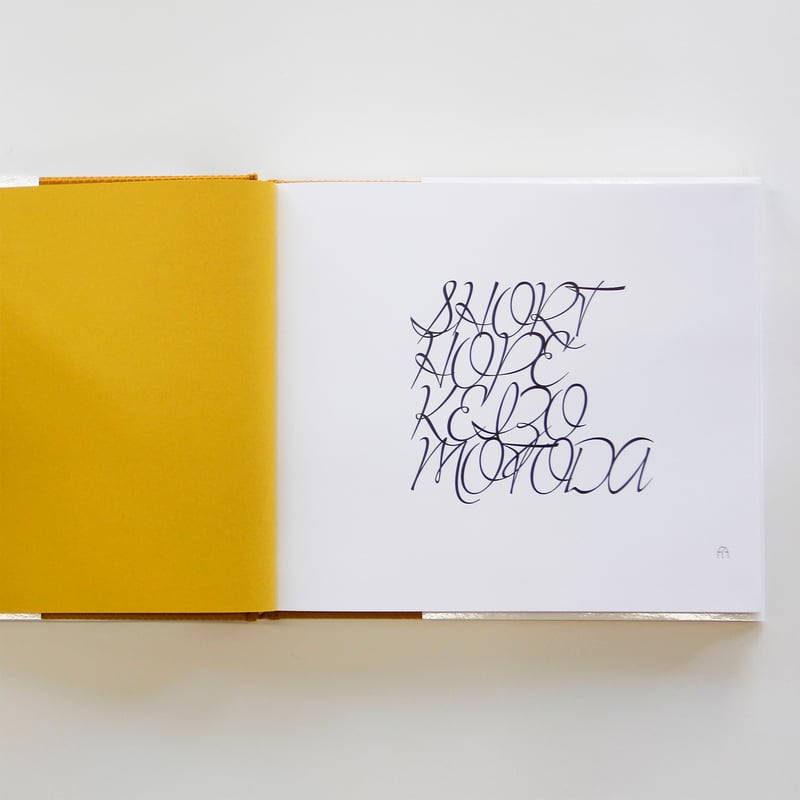 SHORT
HOPE
KEIZO
MOTODA